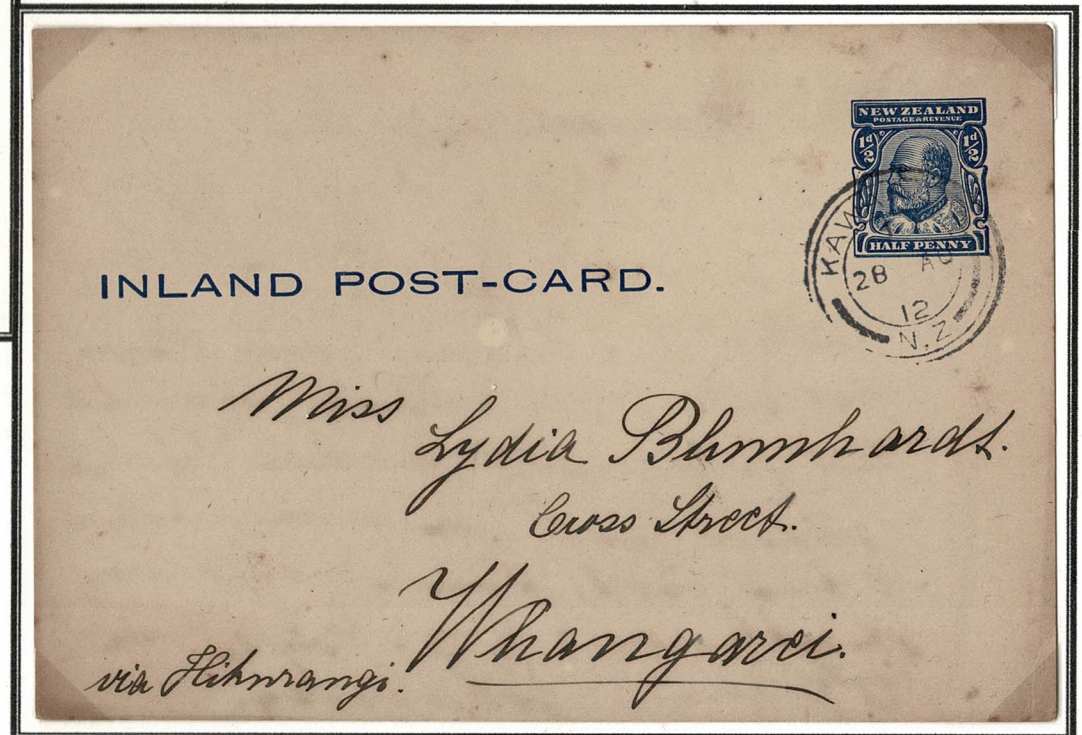 NEW ZEALAND
POSTAGE & REVENUE
½d ½d
HALF PENNY
KAW
28 AU
12
N.Z
INLAND POST-CARD.
Miss
Lydia Blumhardt.
Cross Street.
Whangarei.
via Hikurangi.